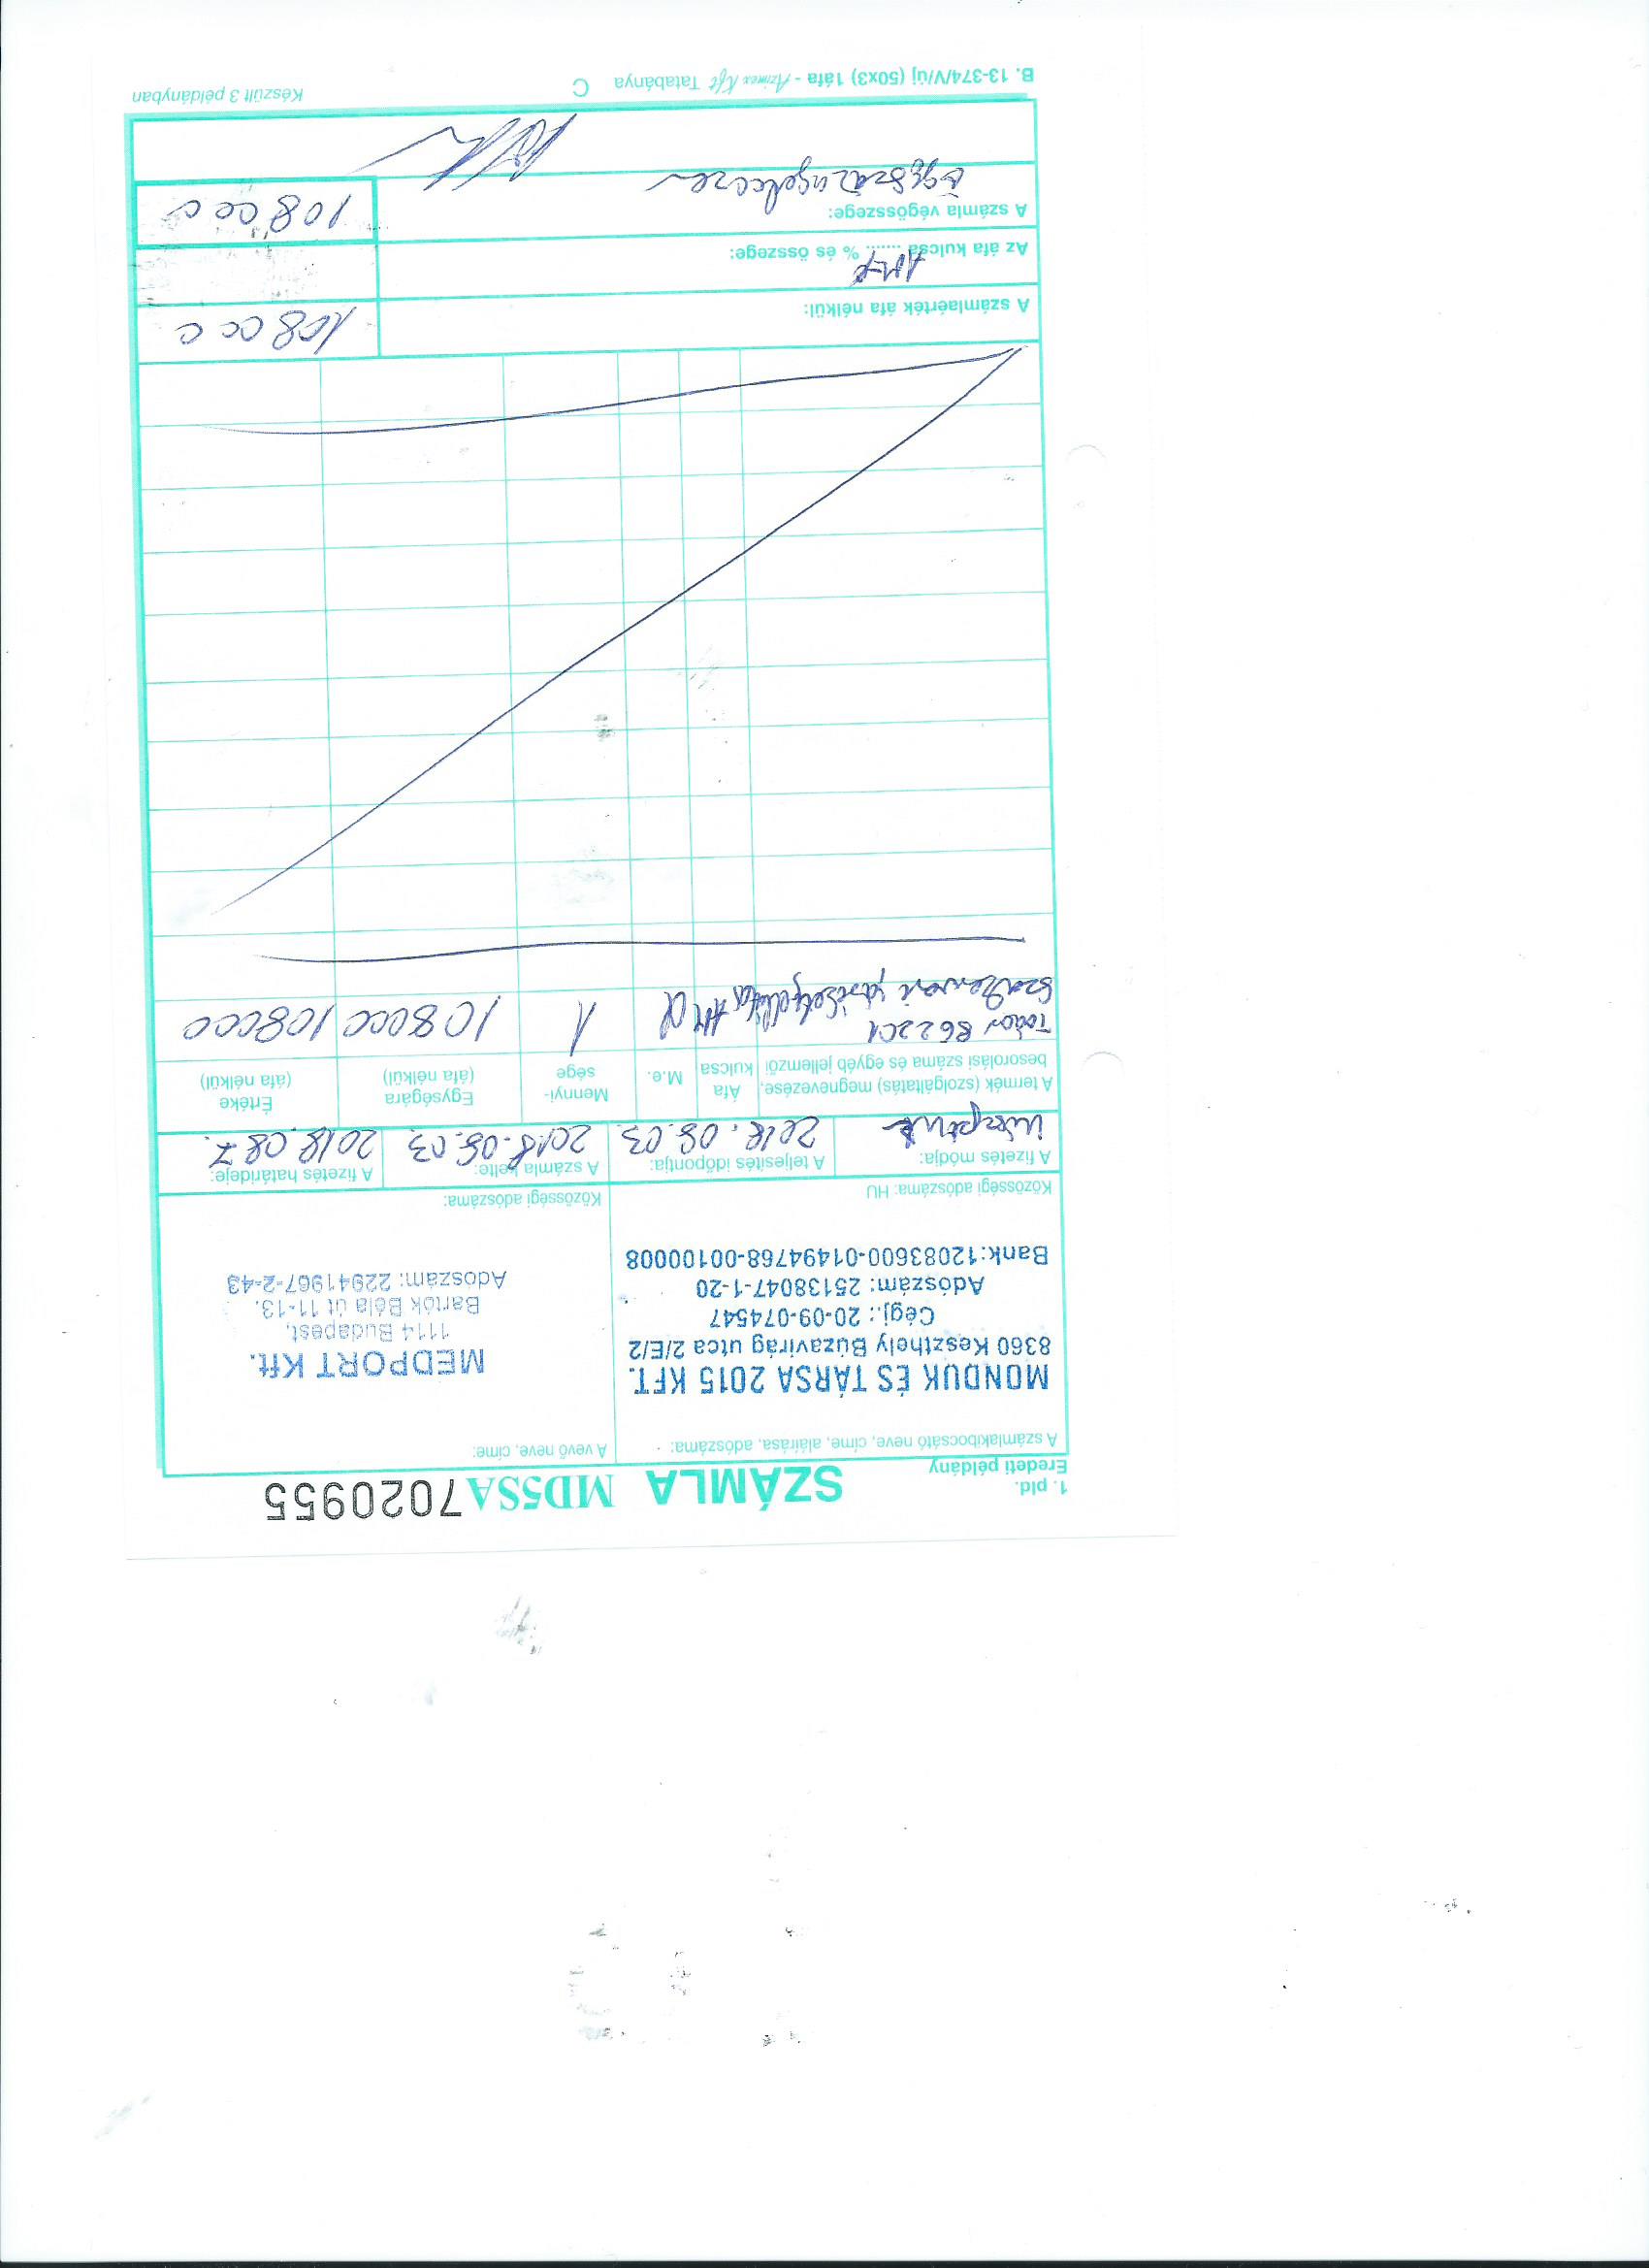 1. pld.
Eredeti példány
SZÁMLA MD5SA7020955
A számlakibocsátó neve, címe, aláírása, adószáma:
MONDUK ÉS TÁRSA 2015 KFT.
8360 Keszthely Búzavirág utca 2/E/2
Cégj.: 20-09-074547
Adószám: 25138047-1-20
Bank:12083600-01494768-00100008
Közösségi adószáma: HU
A vevő neve, címe:
MEDPORT Kft.
1114 Budapest,
Bartók Béla út 11-13.
Adószám: 22941967-2-43
Közösségi adószáma:
A fizetés módja:
A teljesítés időpontja:
2018. 08.03.
A számla kelte:
2018.08.03
A fizetés határideje:
2018.08.7.
A termék (szolgáltatás) megnevezése,
besorolási száma és egyéb jellemzői
Áfa
kulcsa
M.e.
Mennyi-
sége
Egységára
(áfa nélkül)
Értéke
(áfa nélkül)
862201
1 108000 108000
A számlaérték áfa nélkül:
108000
Az áfa kulcsa ...... % és összege:
A számla végösszege:
108000
B. 13-374/V/új (50x3) 1áfa - Azimex Kft Tatabánya C
Készült 3 példányban